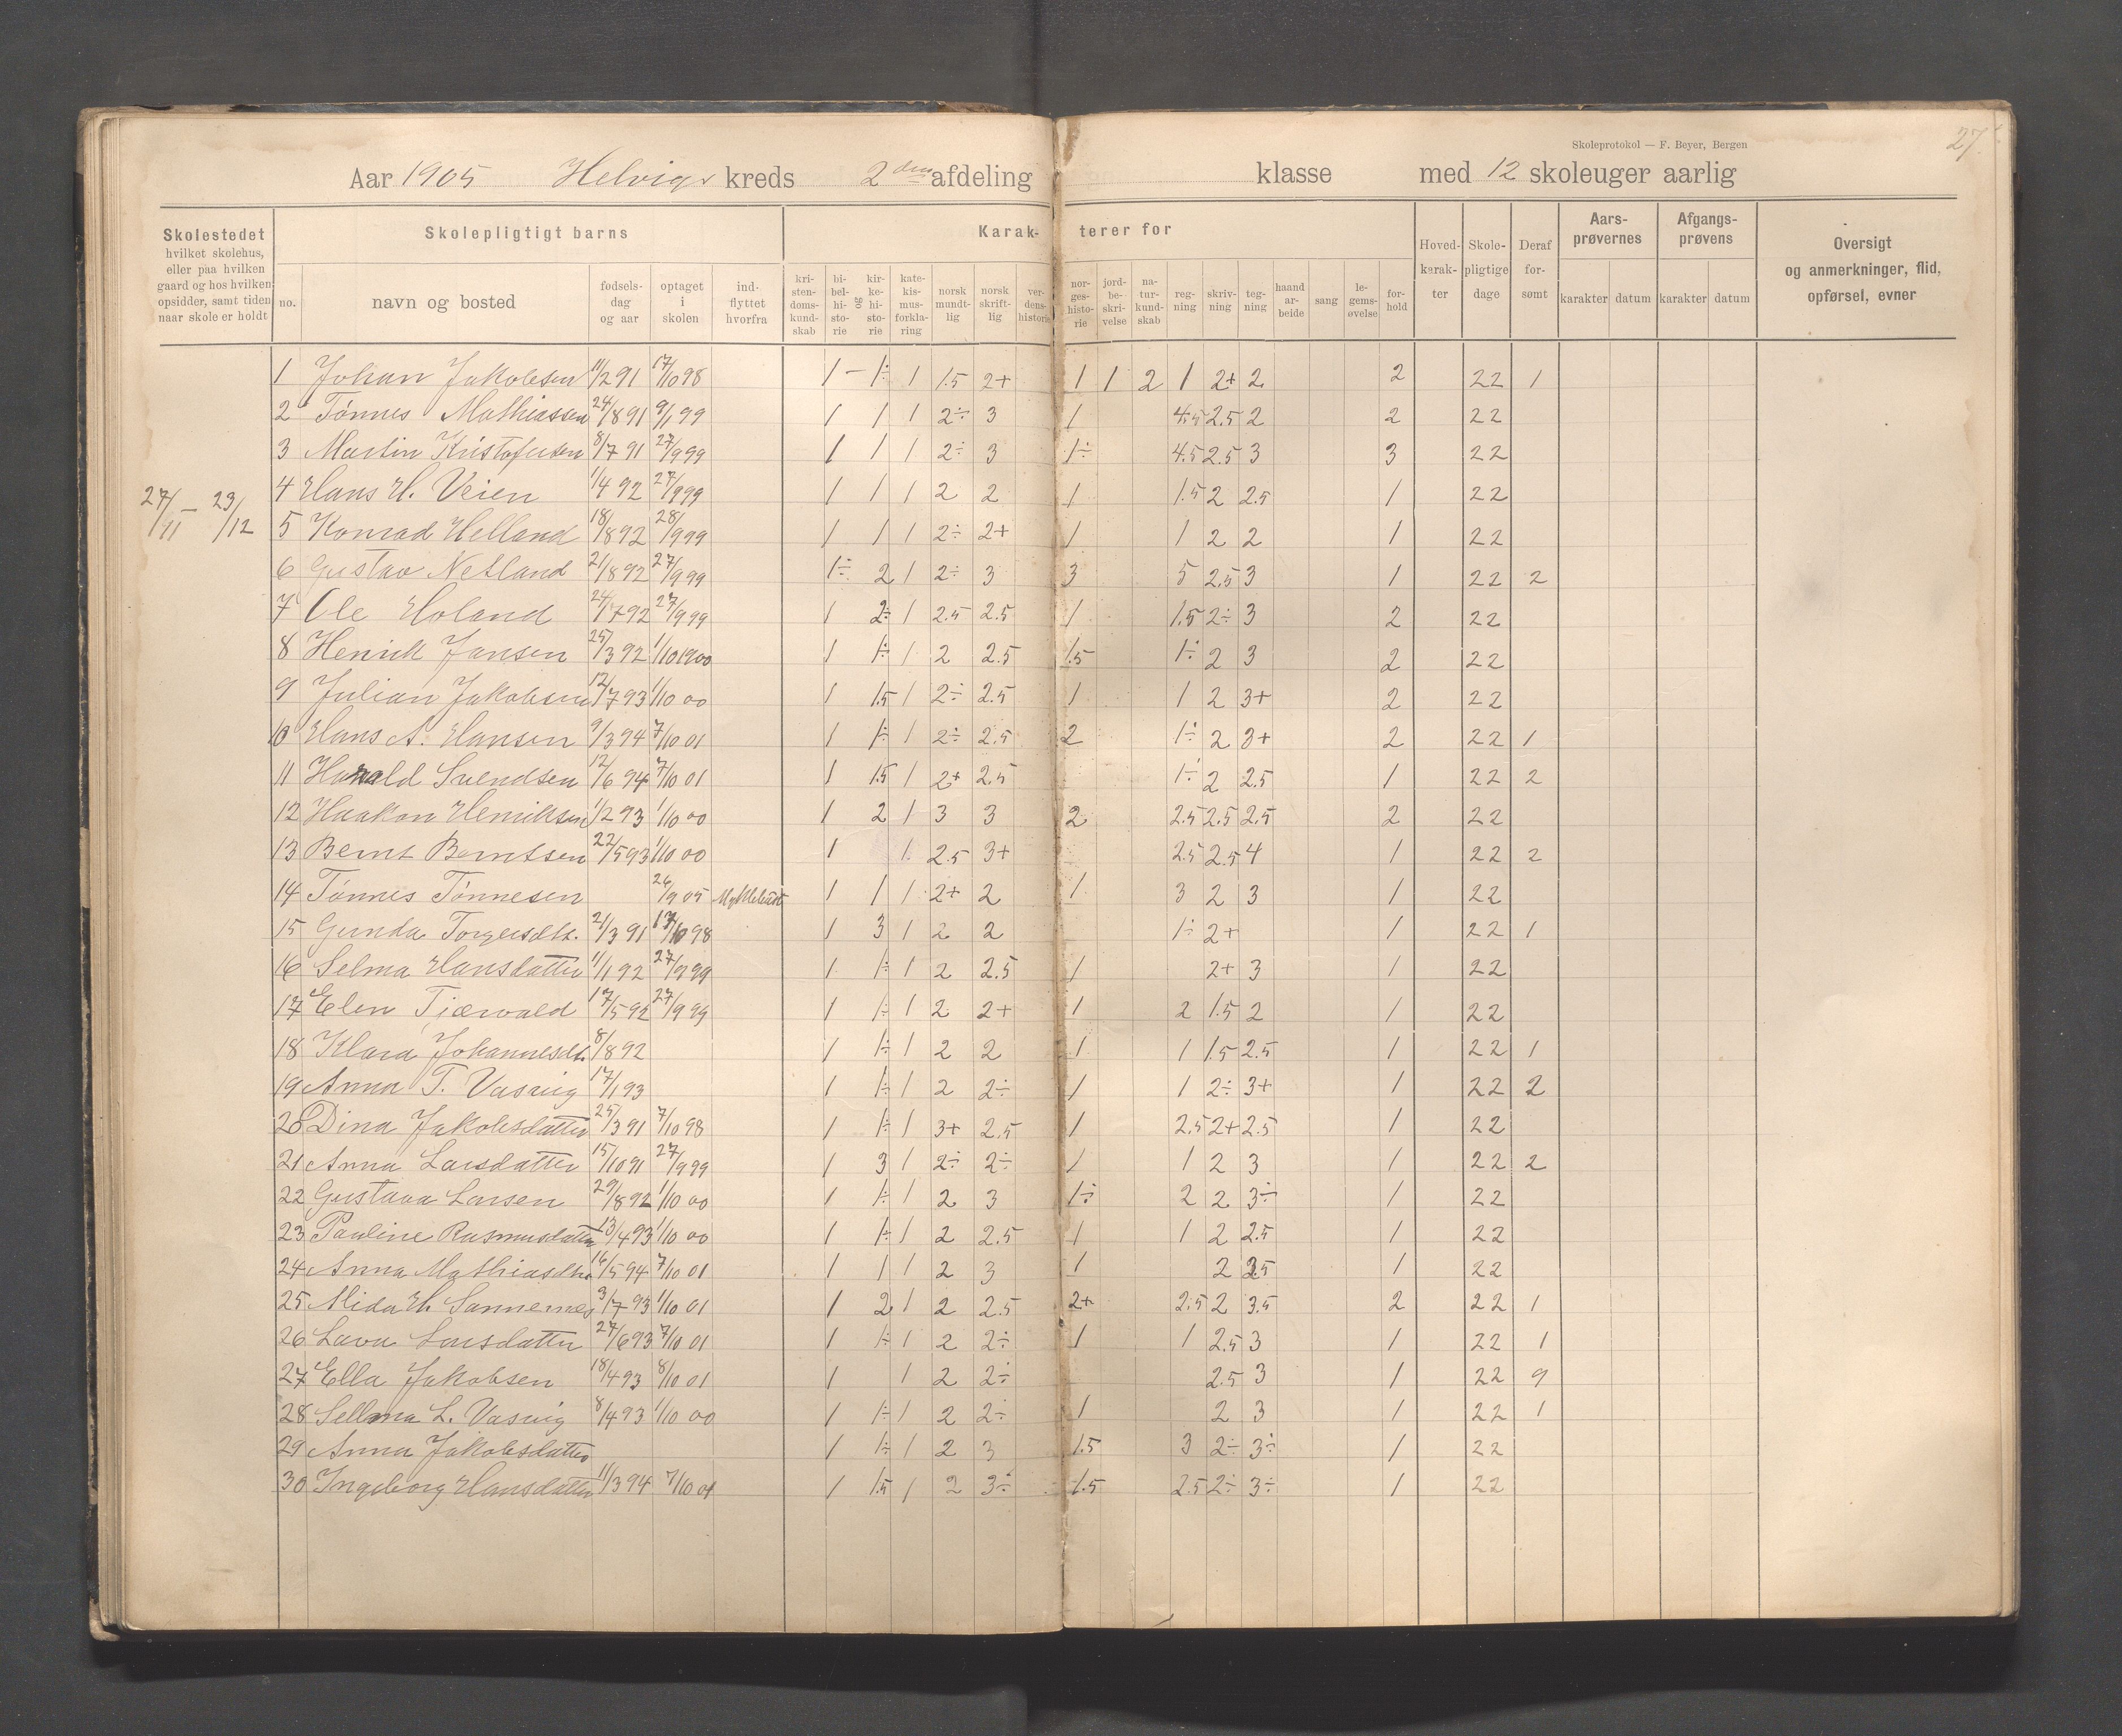 Skoleprotokol — F. Beyer, Bergen
27.
Aar 1905 Helvigs kreds 2den afdeling klasse med 12 skoleuger aarlig
Skolestedet hvilket skolehus, eller paa hvilken gaard og hos hvilken opsidder, samt tiden naar skole er holdt
Skolepligtigt barns
Karak- terer for
no. navn og bosted fødsels- dag og aar optaget i skolen ind- flyttet hvorfra
kri- sten- doms- kund- skab bi- bel- hi- sto- rie og kir- ke- hi- sto- rie kate- kis- mus- forkla- ring norsk mundt- lig norsk skrift- lig ver- dens- historie
nor- ges- histo- rie jord- be- skri- velse na- tur- kund- skab reg- ning skriv- ning teg- ning haand ar- beide sang le- gems- øvelse for- hold
Hoved- karak- ter Skole- pligtige dage Deraf for- sømt
Aars- prøvernes karakter datum Afgangs- prøvens karakter datum
Oversigt og anmerkninger, flid, opførsel, evner
27/11 – 23/12
1 Johan Jakobsen 11/2 91 17/10 98 1 – 1÷ 1 1.5 2+ 1 1 2 1 2+ 2 2 22 1
2 Tønnes Mathiassen 24/8 91 9/1 99 1 1 1 2÷ 3 1 4.5 2.5 2 2 22
3 Martin Kristofersen 8/7 91 27/9 99 1 1 1 2÷ 3 1÷ 4.5 2.5 3 3 22
4 Hans H. Veien 1/4 92 27/9 99 1 1 1 2 2 1 1.5 2 2.5 1 22
5 Konrad Helland 18/8 92 28/9 99 1 1 1 2÷ 2+ 1 1 2 2 1 22
6 Gustav Netland 21/8 92 27/9 99 1÷ 2 1 2÷ 3 3 5 2.5 3 1 22 2
7 Ole Holand 24/7 92 27/9 99 1 2÷ 1 2.5 2.5 1 1.5 2÷ 3 2 22
8 Henrik Jansen 25/3 92 1/10 1900 1 1÷ 1 2 2.5 1.5 1÷ 2 3 2 22
9 Julian Jakobsen 12/7 93 1/10 00 1 1.5 1 2÷ 2.5 1 1 2 3+ 2 22
10 Hans A. Hansen 9/3 94 7/10 01 1 1÷ 1 2÷ 2.5 2 1÷ 2 3+ 2 22 1
11 Harald Svendsen 12/6 94 7/10 01 1 1.5 1 2+ 2.5 1÷ 2 2.5 1 22 2
12 Haakon Henriksen 1/2 93 1/10 00 1 2 1 3 3 2 2.5 2.5 2.5 2 22
13 Bernt Berntsen 22/5 93 1/10 00 1 1 2.5 3+ 2.5 2.5 4 1 22 2
14 Tønnes Tønnesen 26/9 05 1 1 1 2+ 2 1 3 2 3 1 22
15 Gunda Torgersdtr. 21/3 91 17/10 98 1 3 1 2 2 1÷ 2+ 1 22 1
16 Selma Hansdatter 11/1 92 27/9 99 1 1÷ 1 2 2.5 1 2+ 3 1 22
17 Elen Tjærvald 17/5 92 27/9 99 1 1÷ 1 2 2+ 1 2 1.5 2 1 22
18 Klara Johannesdt. 8/8 92 1 1÷ 1 2 2 1 1 1.5 2.5 1 22 1
19 Anna T. Vasvig 17/1 93 1 1÷ 1 2 2÷ 1 1 2÷ 3+ 1 22 2
20 Dina Jakobsdatter 25/3 91 7/10 98 1 1÷ 1 3+ 2.5 1 2.5 2+ 2.5 1 22
21 Anna Larsdatter 15/10 91 27/9 99 1 3 1 2÷ 2÷ 1 1 2 3 1 22 2
22 Gustava Larsen 29/8 92 1/10 00 1 1÷ 1 2 3 1÷ 2 2 3÷ 1 22
23 Pauline Rasmusdatter 13/4 93 1/10 00 1 1÷ 1 2 2.5 1 1 2 2.5 1 22
24 Anna Mathiasdtr 16/5 94 7/10 01 1 1 1 2 3 1 2 2.5 1 22
25 Alida H. 3/7 93 1/10 01 1 2 1 2 2.5 2+ 2.5 2 3.5 2 22 1
26 Lava Larsdatter 27/6 93 7/10 01 1 1÷ 1 2 2÷ 1 1 2.5 3 1 22 1
27 Ella Jakobsen 18/4 93 8/10 01 1 1 2 2÷ 2.5 3 1 22 9
28 Sellma L. Vasvig 8/4 93 1/10 00 1 1÷ 1 2 2÷ 1 2 3 1 22 1
29 Anna Jakobsdatter 1 1÷ 1 2 3 1.5 3 2÷ 3÷ 1 22
30 Ingeborg Hansdatter 11/3 94 7/10 01 1 1.5 1 2 3÷ 1.5 2.5 2÷ 3÷ 1 22